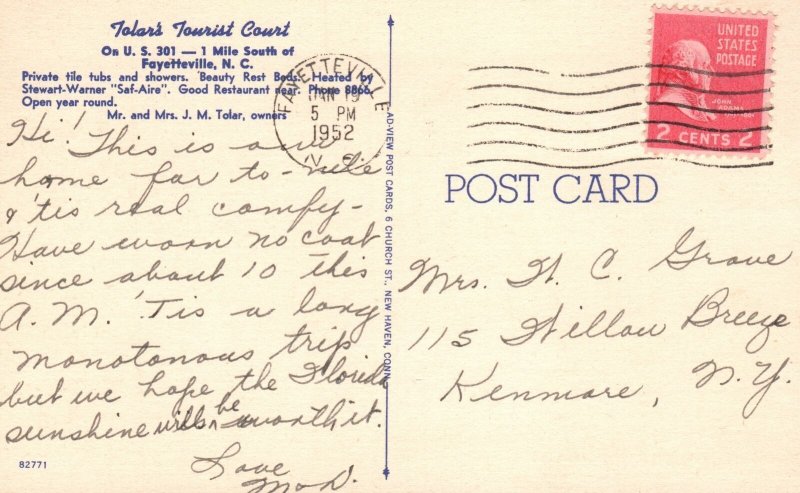 Tolar's Tourist Court
On U. S. 301 — 1 Mile South of
Fayetteville, N. C.
Private tile tubs and showers. 'Beauty Rest Beds. Heated by
Stewart-Warner "Saf-Aire". Good Restaurant near. Phone 8866.
Open year round.
Mr. and Mrs. J. M. Tolar, owners
Hi! This is our
home for to-nite
& 'tis real comfy-
Have worn no coat
since about 10 this
A.M. 'Tis a long
monotonous trip
but we hope the Florida
sunshine will be worth it.
Love
82771
AD-VIEW POST CARDS, 6 CHURCH ST., NEW HAVEN, CONN.
FAYETTEVILLE
JAN 19
5 PM
1952
N. C.
UNITED
STATES
POSTAGE
JOHN ADAMS
2 CENTS 2
POST CARD
Mrs. H. C. Grove
115 Willow Breeze
Kenmore, N.Y.